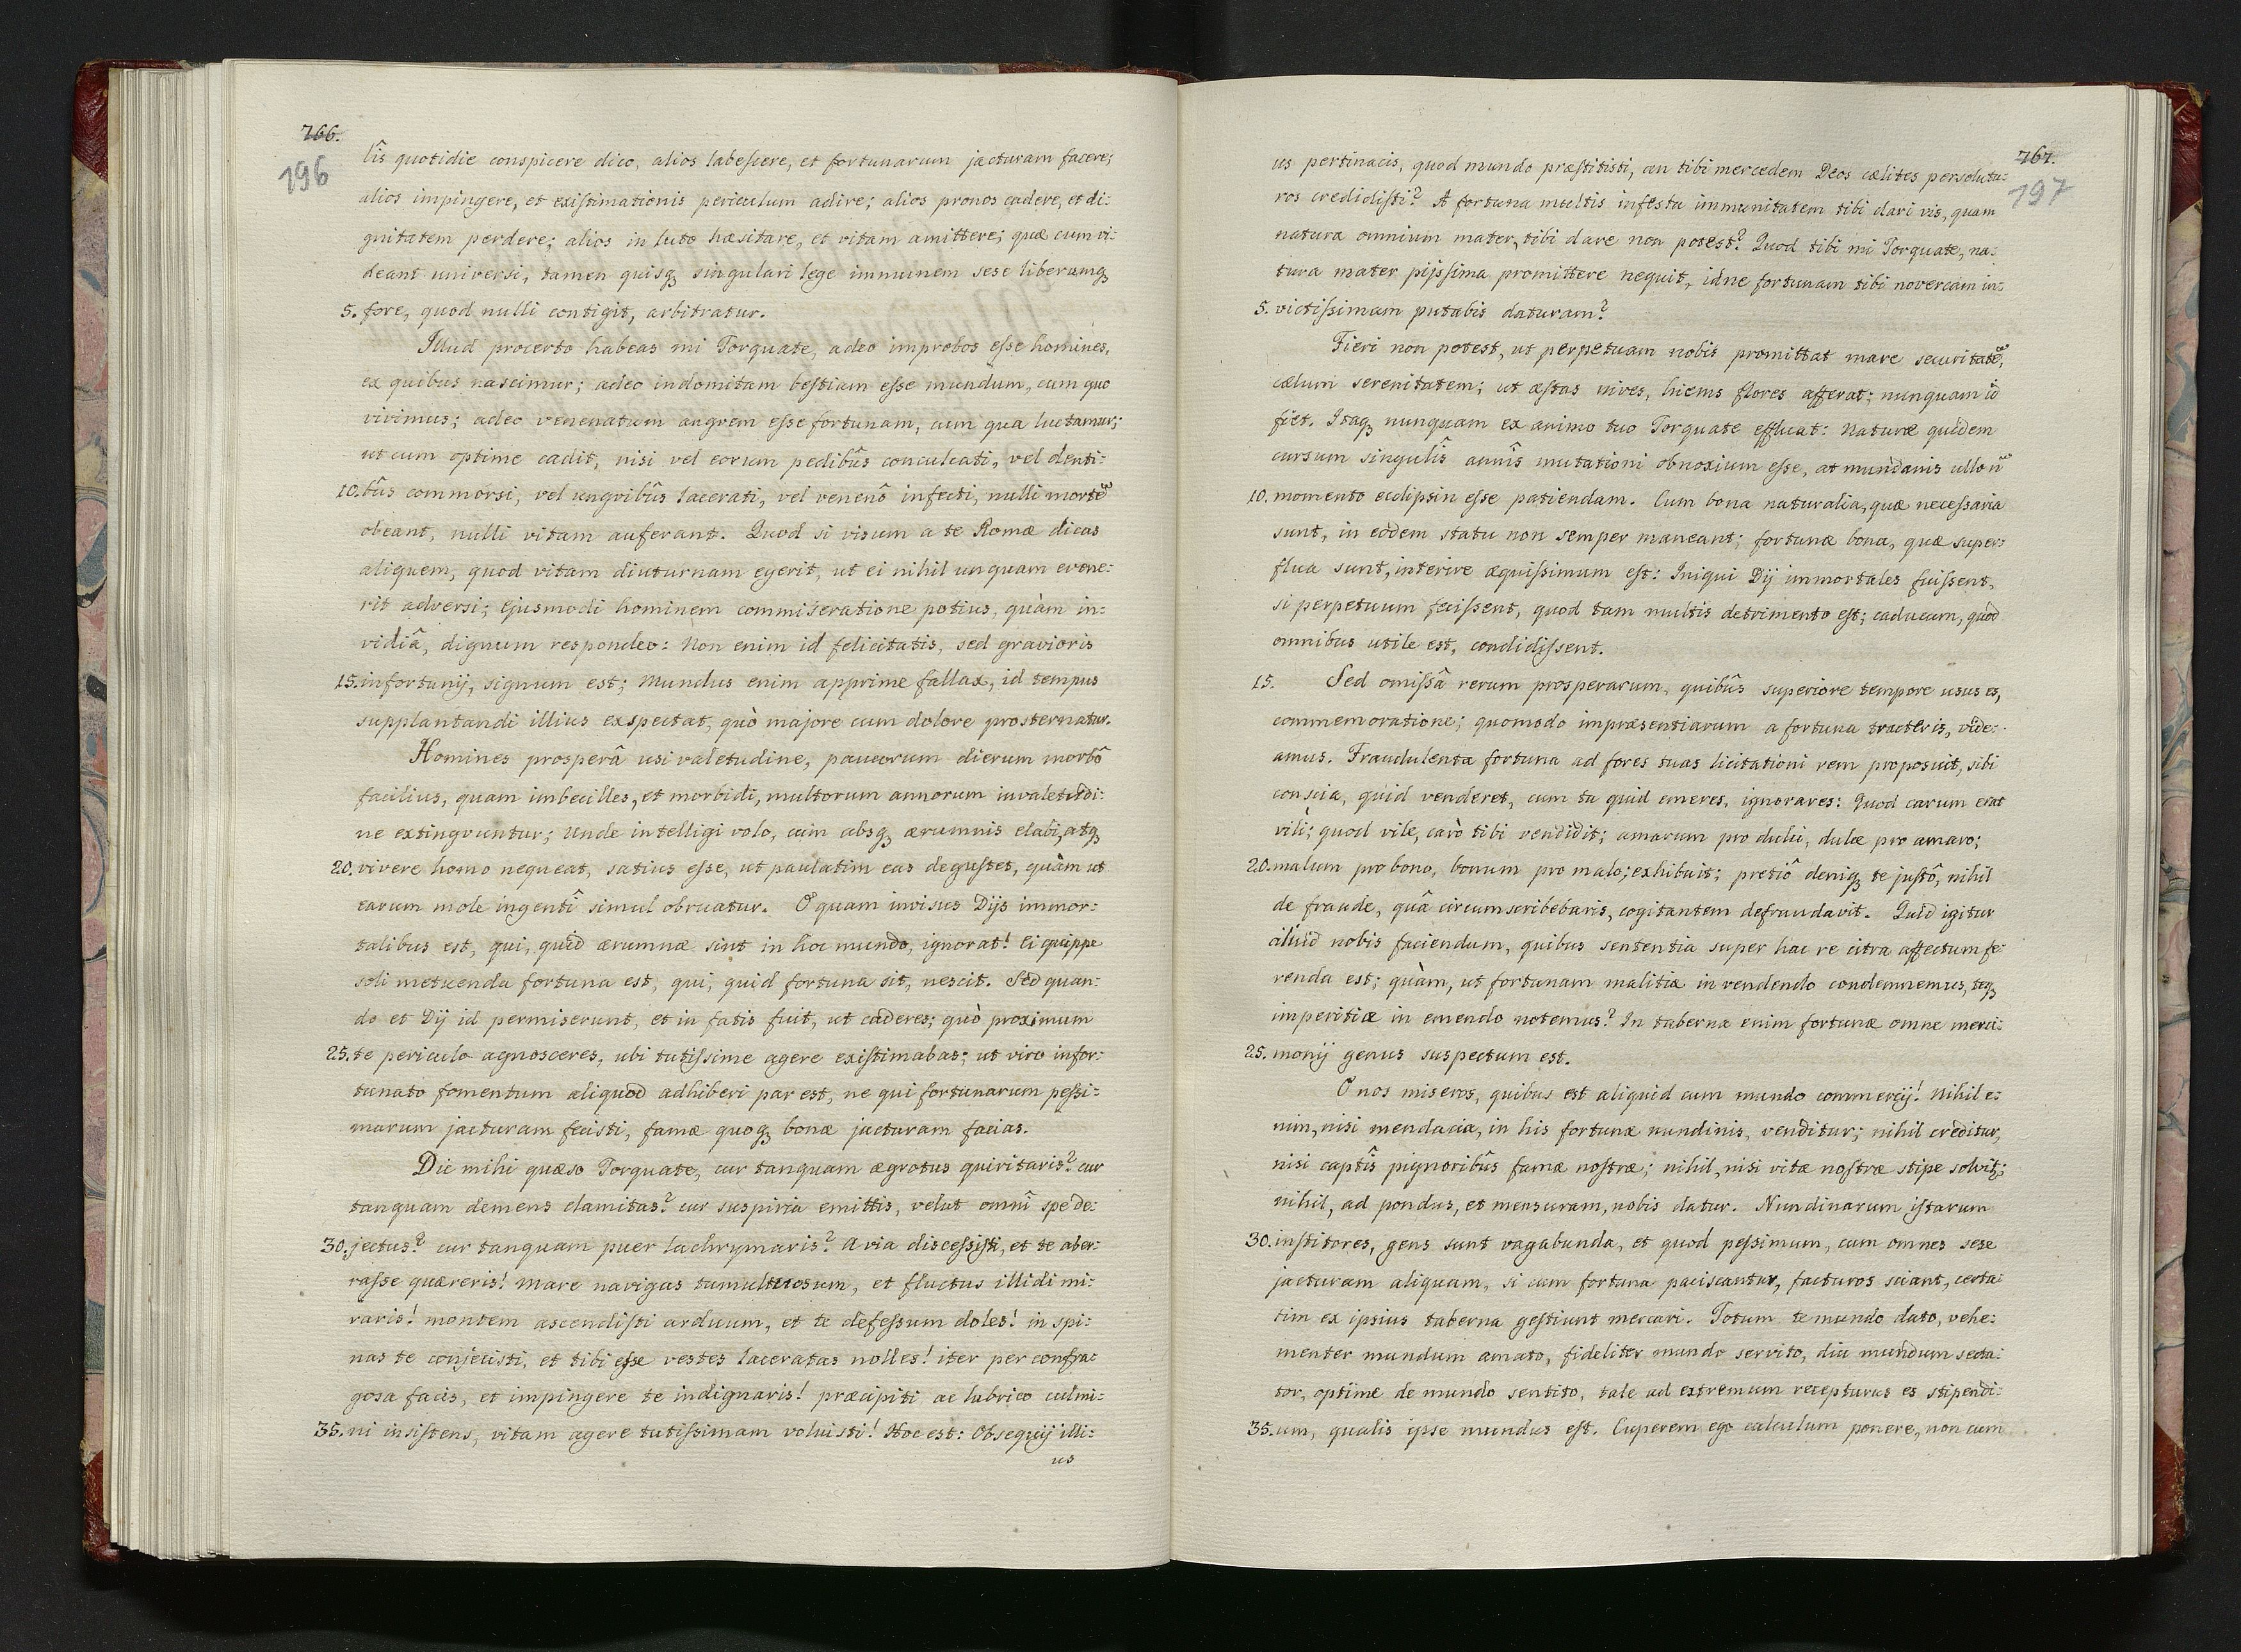 766.
196
lîs quotidie conspicere dico, alios labescere, et fortunarum jacturam facere;
alios impingere, et existimationis periculum adire; alios pronos cadere, et di:
gnitatem perdere; alios in luto hæsitare, et vitam amittere; quæ cum vi:
deant universi, tamen quisq₃ singulari lege immunem sese liberumq₃
5. fore, quod nulli contigit, arbitratur.
Illud procerto habeas mi Torquate, adeo improbos esse homines,
ex quibus nascimur; adeo indomitam bestiam esse mundum, cum quo
vivimus; adeo venenatum angvem esse fortunam, cum qua luctamur;
ut cum optime cadit, nisi vel eorum pedibûs conculcati, vel denti:
10. bûs commorsi, vel ungvibûs lacerati, vel venenô infecti, nulli mortē
obeant, nulli vitam auferant. Quod si visum a te Romæ dicas
aliquem, quod vitam diuturnam egerit, ut ei nihil unquam evene:
rit adversi; ejusmodi hominem commiseratione potius, quàm in:
vidiâ, dignum respondeo: Non enim id felicitatis, sed gravioris
15. infortunij, signum est; Mundus enim apprime fallax, id tempus
supplantandi illius exspectat, quò majore cum dolore prosternatur.
Homines prosperâ usi valetudine, paucorum dierum morbô
facilius, quam imbecilles, et morbidi, multorum annorum invaletudi:
ne extingvuntur; Unde intelligi volo, cùm absq₃ ærumnis elabi, atq₃
20. vivere homo nequeat, satius esse, ut paulatim eas degustet, quàm ut
earum mole ingentî simul obruatur. O quam invisus Dijs immor:
talibus est, qui, quid ærumnæ sint in hoc mundo, ignorat! Ei quippe
soli metuenda fortuna est, qui, quid fortuna sit, nescit. Sed quan:
do et Dij id permiserunt, et in fatis fuit, ut caderes; quò proximum
25. te periculo agnosceres, ubi tutissime agere existimabas; ut viro infor:
tunato fomentum aliquod adhiberi par est, ne qui fortunarum pessi:
marum jacturam fecisti, famæ quoq₃ bonæ jacturam facias.
Dic mihi quæso Torquate, cur tanquam ægrotus quiritaris? cur
tanquam demens clamitas? cur suspiria emittis, velut omnî spe de:
30. jectus? cur tanquam puer lachrymaris? A via discessisti, et te aber:
rasse quæreris! mare navigas tumultuosum, et fluctus illidi mi:
raris! montem ascendisti arduum, et te defessum doles! in spi:
nas te conjecisti, et tibi esse vestes laceratas nolles! iter per confra:
gosa facis, et impingere te indignaris! præcipiti ac lubrico culmi:
35. ni insistens, vitam agere tutissimam voluisti! Hoc est: Obsequij illi:
us
767.
197
us pertinacis, quod mundo præstitisti, an tibi mercedem Deos cælites persolutu:
ros credidisti? A fortuna multis infesta immunitatem tibi dari vis, quam
natura omnium mater, tibi dare non potest? Quod tibi mi Torquate, na:
tura mater pijssima promittere nequit, idne fortunam tibi novercam in:
5. victissimam putabis daturam?
Fieri non potest, ut perpetuam nobis promittat mare securitatē,
cælum serenitatem; ut æstas nives, hiems flores afferat; nunquam id
fiet. Itaq₃ nunquam ex animo tuo Torquate effluat: Naturæ quidem
cursum singulîs annîs mutationi obnoxium esse, at mundanis ullo ñ
10. momento ecclipsin esse patiendam. Cum bona naturalia, quæ necessaria
sunt, in eodem statu non semper maneant; fortunæ bona, quæ super:
flua sunt, interire æquissimum est: Iniqui Dij immortales fuissent,
si perpetuum fecissent, quod tam multis detrimento est; caducum, quod
omnibus utile est, condidissent.
15. Sed omissâ rerum prosperarum, quibûs superiore tempore usus es,
commemoratione; quomodo impræsentiarum a fortuna tracteris, vide:
amus. Fraudulenta fortuna ad fores tuas licitationi rem proposuit, sibi
conscia, quid venderet, cum tu quid emeres, ignorares: Quod carum erat
vilì; quod vile, carò tibi vendidit; amarum pro dulci, dulce pro amaro;
20. malum pro bono, bonum pro malo; exhibuit; pretiô deniq₃ te justô, nihil
de fraude, quâ circumscribebaris, cogitantem defraudavit. Quid igitur
aliud nobis faciendum, quibus sententia super hac re citra affectum fe:
renda est; quàm, ut fortunam malitiæ in vendendo condemnemus, teq₃
imperitiæ in emendo notemus? In taberna enim fortunæ omne merci:
25. monij genus suspectum est.
O nos miseros, quibus est aliquid cum mundo commercij! Nihil e:
nim, nisi mendacia, in his fortunæ nundinis, venditur; nihil creditur,
nisi captîs pignoribûs famæ nostræ; nihil, nisi vitæ nostræ stipe solvit;
nihil, ad pondus, et mensuram, nobis datur. Nundinarum istarum
30. institores, gens sunt vagabunda, et quod pessimum, cum omnes sese
jacturam aliquam, si cum fortuna paciscantur, facturos sciant, certa:
tim ex ipsius taberna gestiunt mercari. Totum te mundo dato, vehe:
menter mundum amato, fideliter mundo servito, diu mundum secta:
tor, optime de mundo sentito, tale ad extremum recepturus es stipendi:
35. um, qualis ipse mundus est. Cuperem ego calculum ponere, non cum